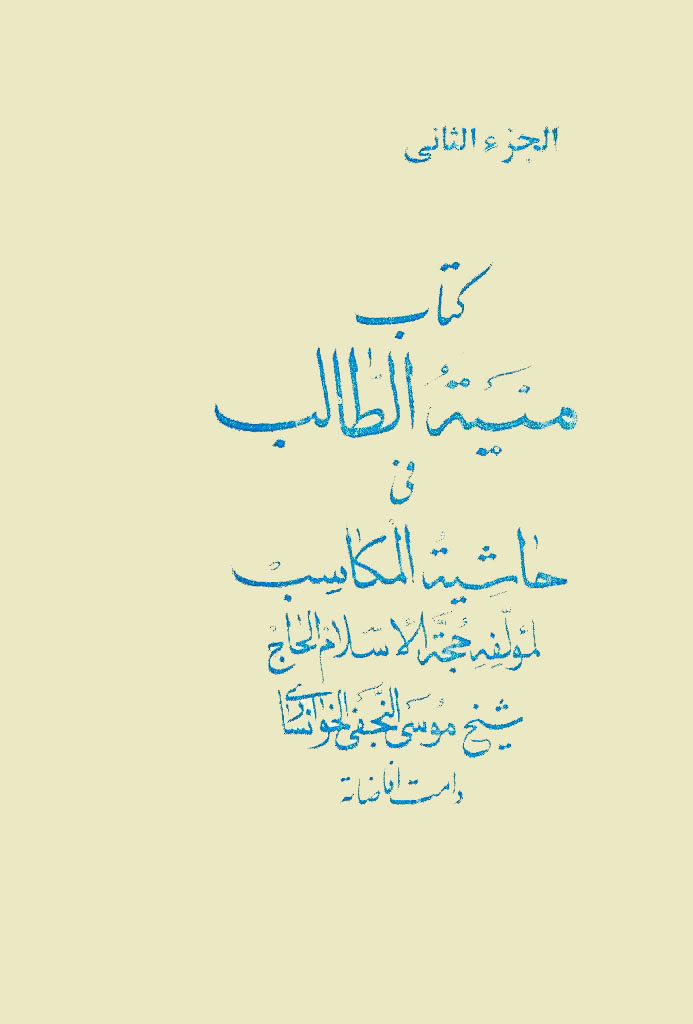 الجزء الثانی
كتاب
منيَةُ الطَّالب
فى
حاشِيَةُ المكاسِبْ
لمؤلّفِهِ حُجَّة الاسّلامْ الحٰاجْ
شيخ مُوسَى النَّجفى الخوانسٰارى
دامت افاضاته